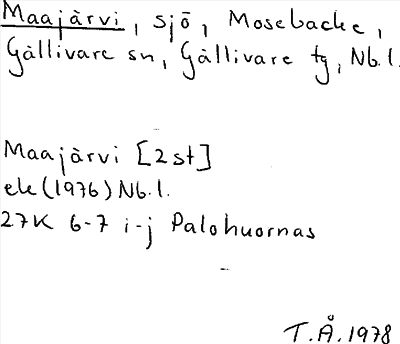 Maajärvi, sjö, Mosebacke,
Gällivare sn, Gällivare tg, Nb.l.
Maajärvi [2 st]
ek (1976) Nb.l.
27K 6-7 i-j Palohuornas
T.Å. 1978